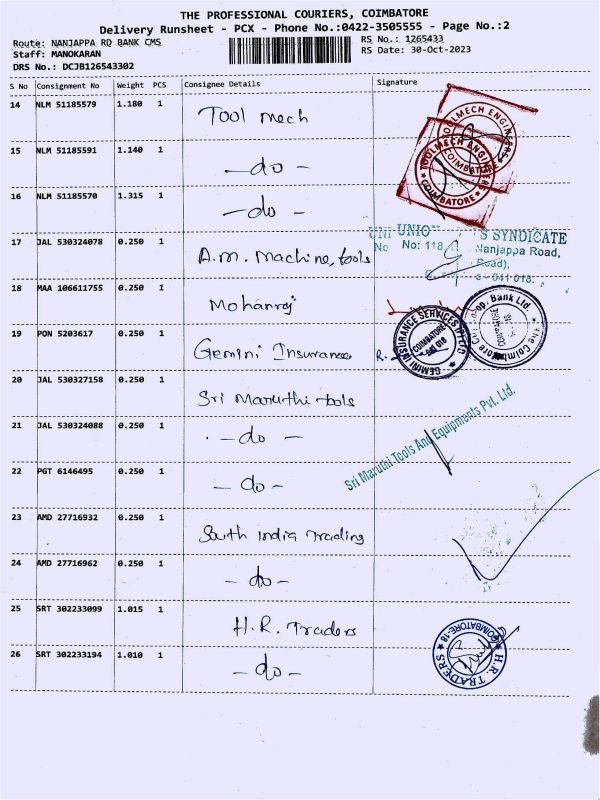 THE PROFESSIONAL COURIERS, COIMBATORE
Delivery Runsheet - PCX - Phone No.:0422-3505555 - Page No.:2
Route: NANJAPPA RD BANK CMS RS No.: 1265433
Staff: MANOKARAN RS Date: 30-Oct-2023
DRS No.: DCJB126543302
S No Consignment No Weight PCS Consignee Details Signature
14 NLM 51185579 1.180 1 Tool mech
TOOLMECH ENGINEERS
COIMBATORE
TOOLMECH ENGINEERS
COIMBATORE
15 NLM 51185591 1.140 1 -do-
16 NLM 51185570 1.315 1 -do-
UNION S SYNDICATE
No: 118 Nanjappa Road,
Road),
641 018.
17 JAL 530324078 0.250 1 A.M. Machine, tools
18 MAA 106611755 0.250 1 Mohanraj
The Coimbatore Bank Ltd.
19 PON 5203617 0.250 1 Gemini Insurance
GEMINI INSURANCE SERVICES (P) LTD
COIMBATORE
641 018
20 JAL 530327158 0.250 1 Sri Maruthi tools
21 JAL 530324088 0.250 1 -do-
Sri Maruthi Tools And Equipments Pvt. Ltd.
22 PGT 6146495 0.250 1 -do-
23 AMD 27716932 0.250 1 South india trading
24 AMD 27716962 0.250 1 -do-
25 SRT 302233099 1.015 1 H.R. Traders
H.R. TRADERS
COIMBATORE-18
26 SRT 302233194 1.010 1 -do-